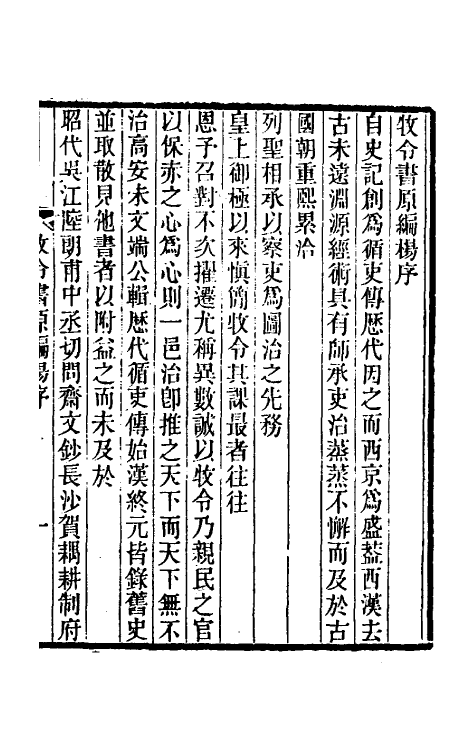 牧令書原編楊序
自史記創爲循吏傳歷代因之而西京爲盛葢西漢去
古未遠淵源經術具有師承吏治蒸蒸不懈而及於古
國朝重熙累洽
列聖相承以察吏爲圖治之先務
皇上御極以來慎簡牧令其課最者往往
恩予召對不次擢遷尤稱異數誠以牧令乃親民之官
以保赤之心爲心則一邑治卽推之天下而天下無不
治高安朱文端公輯歷代循吏傳始漢終元皆錄舊史
並取散見他書者以附益之而未及於
昭代吳江陸朗甫中丞切問齋文鈔長沙賀耦耕制府
牧令書原編楊序
一